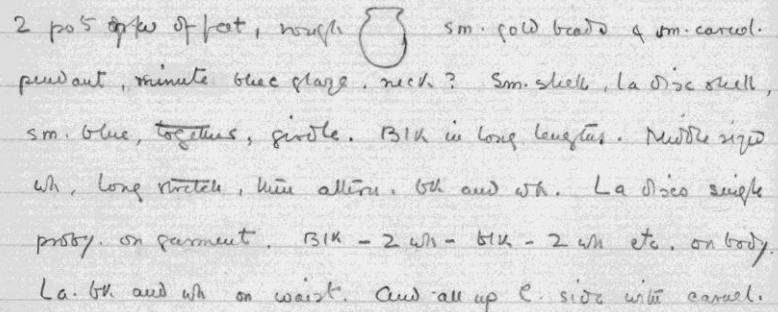 2 pots of feet, rough sm. gold beads & sm. carnel.
pendant, minute blue glaze. neck? Sm. shell, La disc shell,
sm. blue, together, girdle. Blk in long lengths. Middle sized
wh, long stretch, then altern. blk and wh. La discs single
proby. on garment. Blk - 2 wh - blk - 2 wh etc. on body.
La. blk and wh on waist. And all up l. side with carnel.